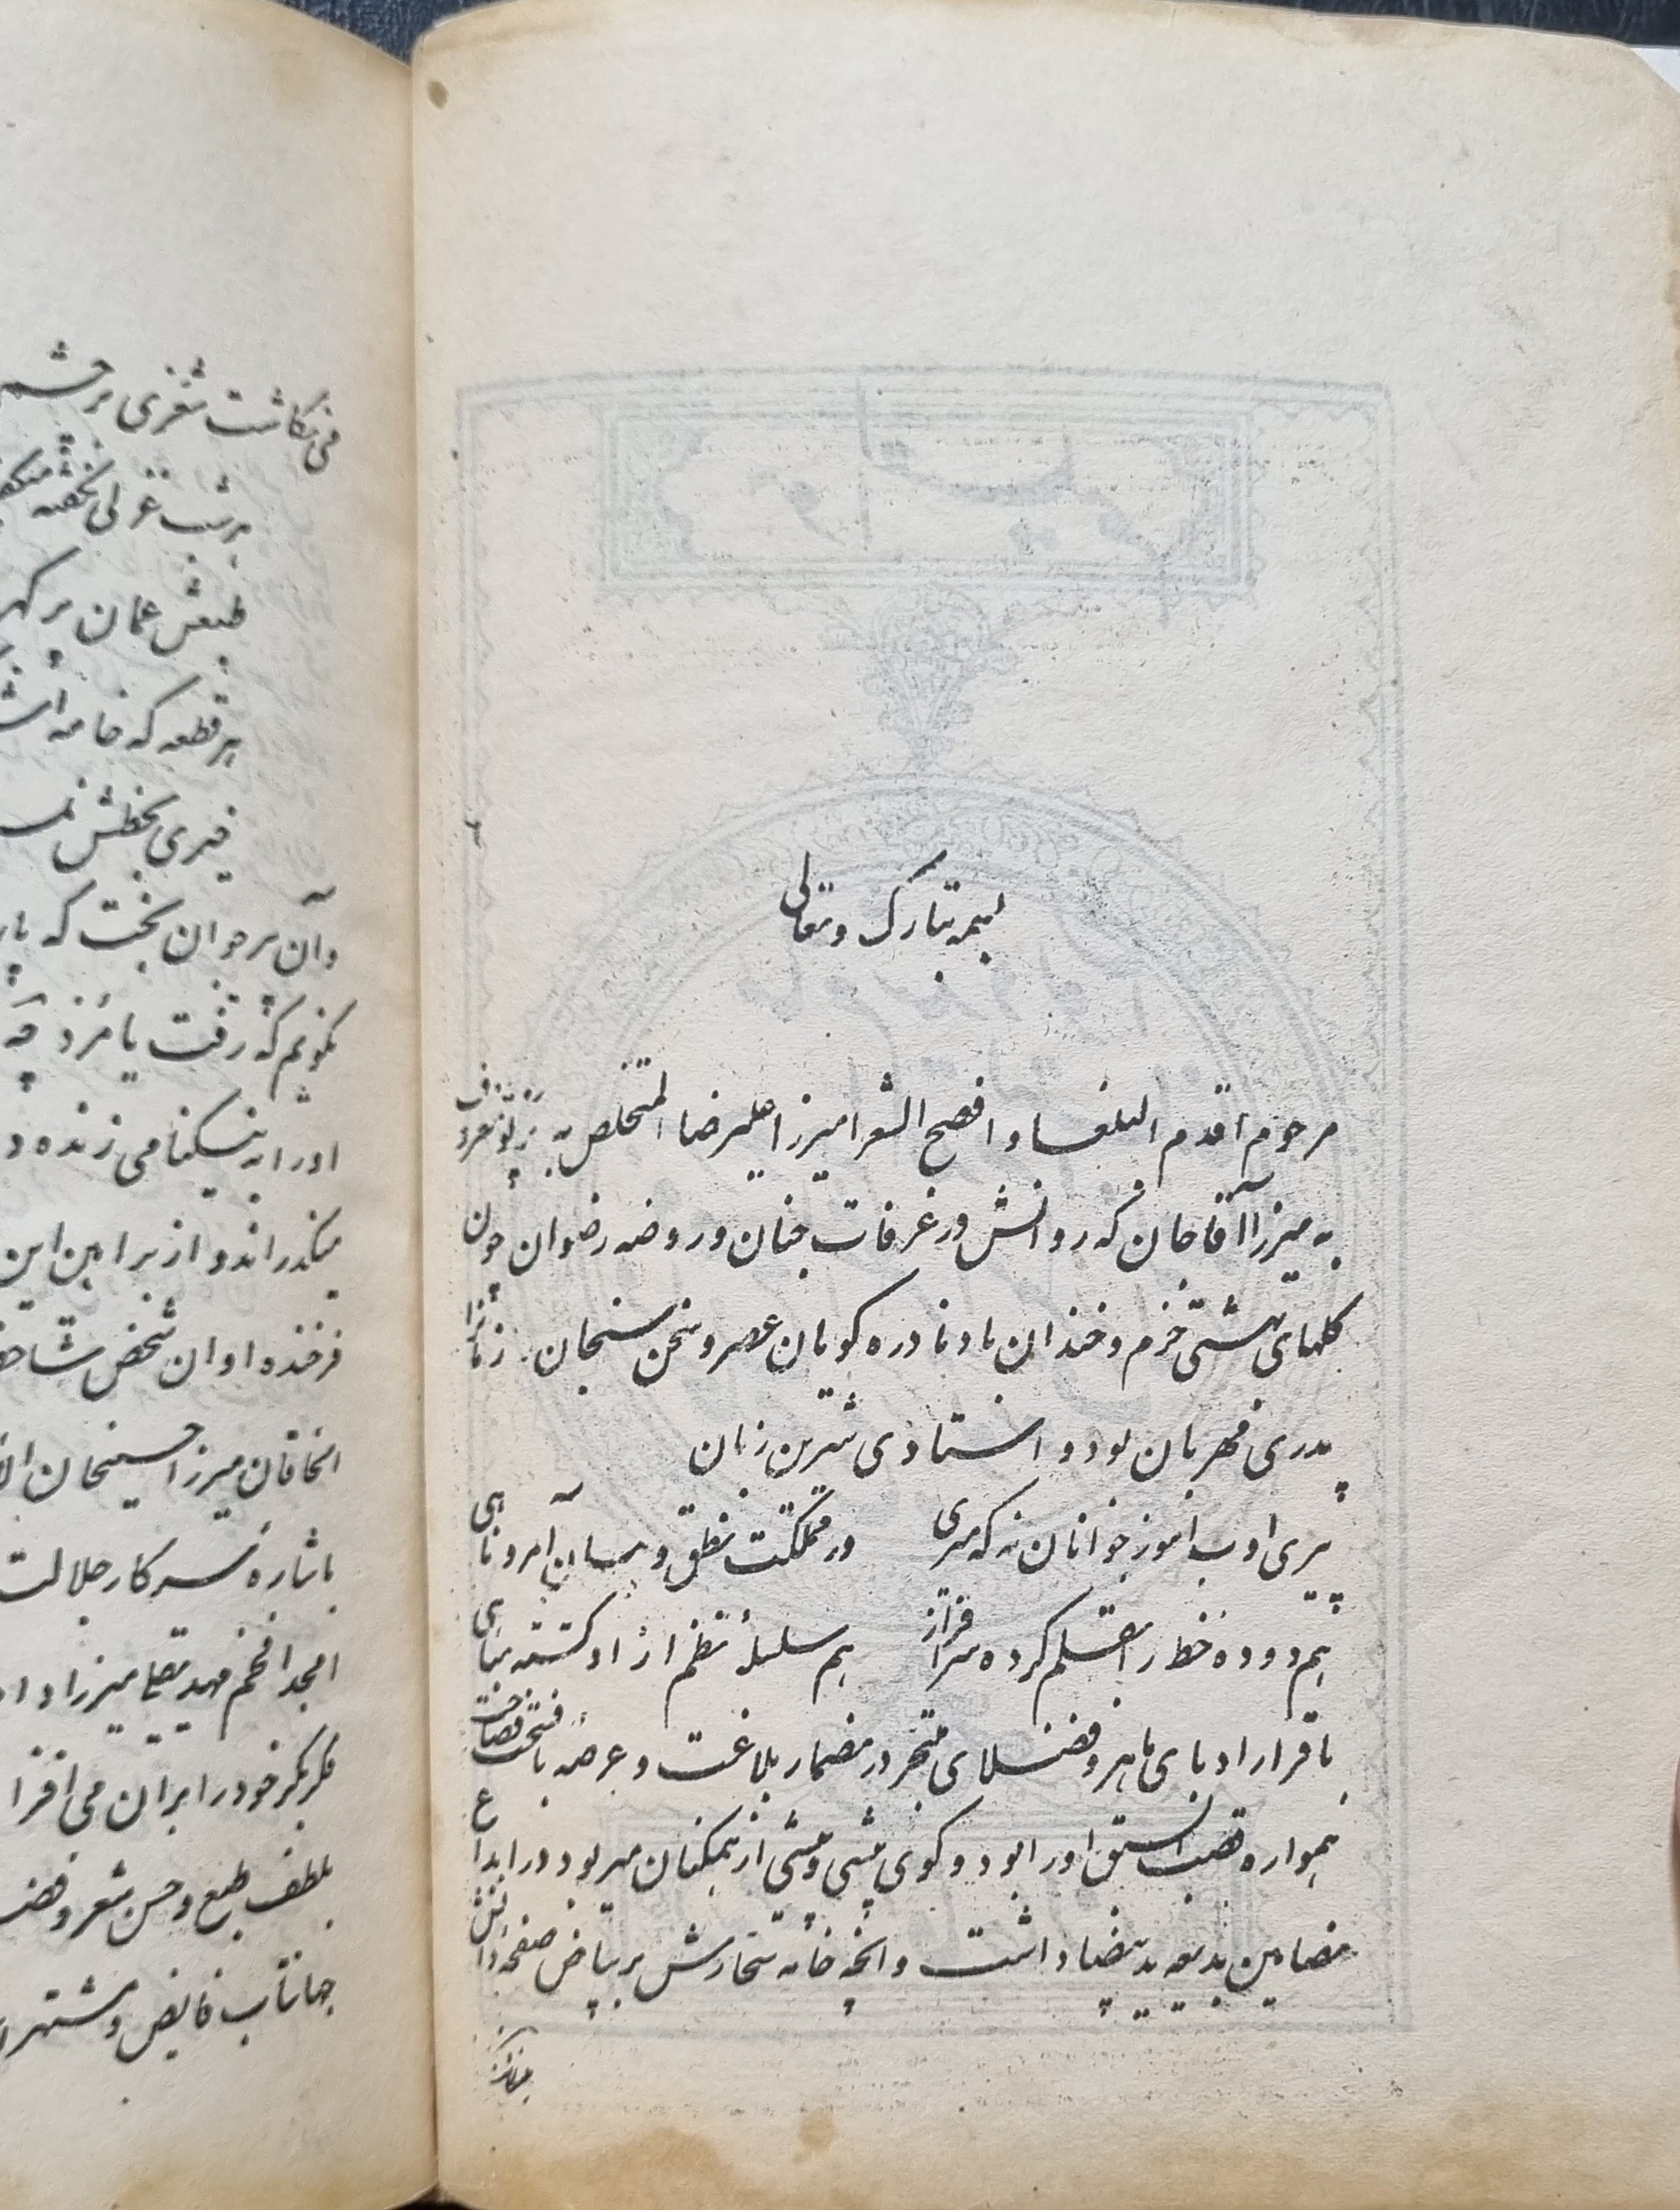 بسمه تبارک و تعالی
مرحوم اقدم البلغا و افصح الشعرا میرزا علیرضا المتخلص به پرتو معروف
به میرزا آقاجان که روانش در غرفات جنان و روضه رضوان چون
کلهای بهشتی خرم و خندان باد نادره کویان عصر و سخن سنجان زمانرا
پدری مهربان بود و استادی شیرین زبان
پیری ادب آموز جوانان نه که میری در مملکت نطق و بیان آمر و ناهی
هم دوده خط را بقلم کرده سرافراز هم سلسلهٔ نظم از او کشته مباهی
باقرار ادبای ماهر و فضلای متبحر در مضمار بلاغت و عرصه با فسحت فصاحت
همواره قصب السبق او را بود و کوی پیشی و بیشی از همکنان میربود در ابداع
مضامین بدیعه ید بیضا داشت و آنچه خامه سحارش بر بیاض صفحه دانش
می نکاشت شعری بر چشم
هر شب غزلی نخفته
طبعش عمان پر کهر
هر قطعه که خامه
وآن پیر جوان بخت که
نکویم که رفت یا مرد چه
او را به نیکنامی زنده
میکذراند و از براهین این
فرخنده اوان شخص شاخص
الخاقان میرزا حسینخان
باشاره سرکار جلالت
امجد افخم مهدیقلی میرزا
فکر بکر خود در ایران می افزا
بلطف طبع و حسن شعر و فضل
جهانتاب فایض و مشتهر